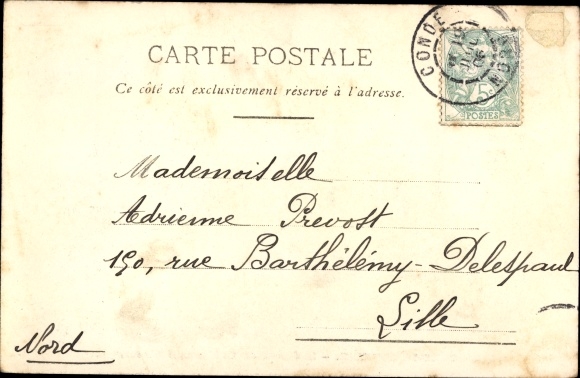 CARTE POSTALE
Ce côté est exclusivement réservé à l'adresse.
CONDE
NORD
5c
POSTES
Mademoiselle
Adrienne Prevost
150, rue Barthélémy-Delespaul
Lille
Nord